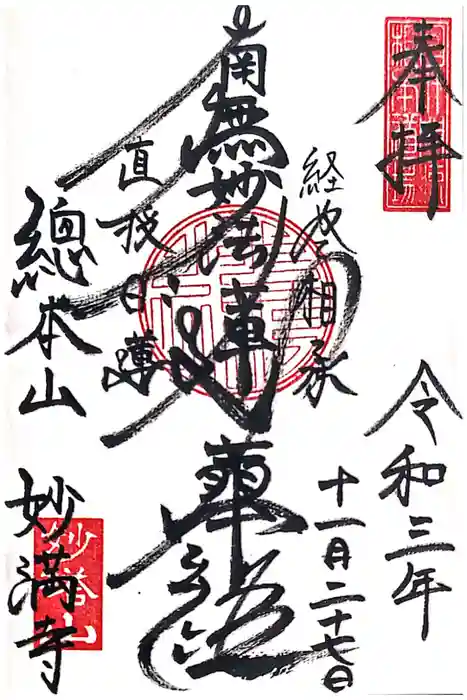 奉拝
令和三年
十一月二十七日
経巻相承
南無妙法蓮華経
直授日蓮
總本山
妙満寺
妙塔山